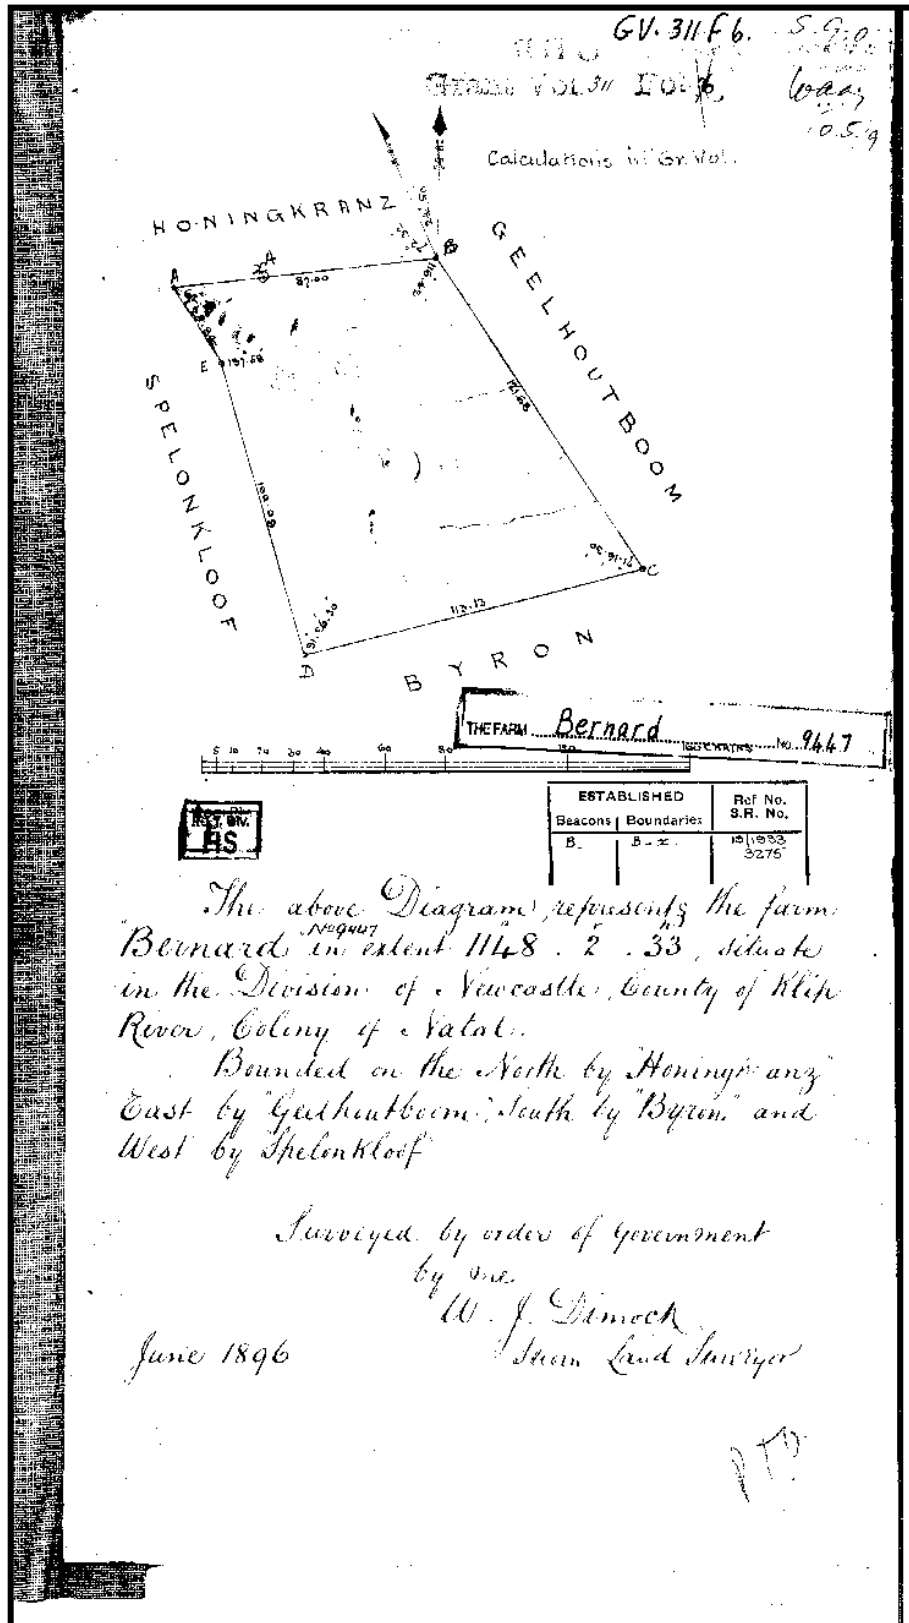 GV. 311. F 6.
S.G.O.
Grant Vol. 311 Fol. 6.
Calculations in Gr. Vol.
HONINGKRANZ
GEELHOUTBOOM
A
B
87.00
116.42
E
157.58
SPELONKLOOF
121.68
100.08
71.16.30
C
113.13
91.06.30
D
BYRON
THE FARM Bernard No. 9447
5 10 20 30 40 60 80 120 160 CHAINS
REGT. DIV.
HS
ESTABLISHED Ref No. S.R. No.
Beacons Boundaries
B. B-x. 19/1933
3275
The above Diagram represents the farm
No 9447
"Bernard" in extent 1148 . 2 . 33, situate
in the Division of Newcastle, County of Klip
River, Colony of Natal.
Bounded on the North by "Honingkranz"
East by "Geelhoutboom", South by "Byron" and
West by Spelonkloof
Surveyed by order of Government
by me.
W. J. Dimock
Sworn Land Surveyor
June 1896
PTO